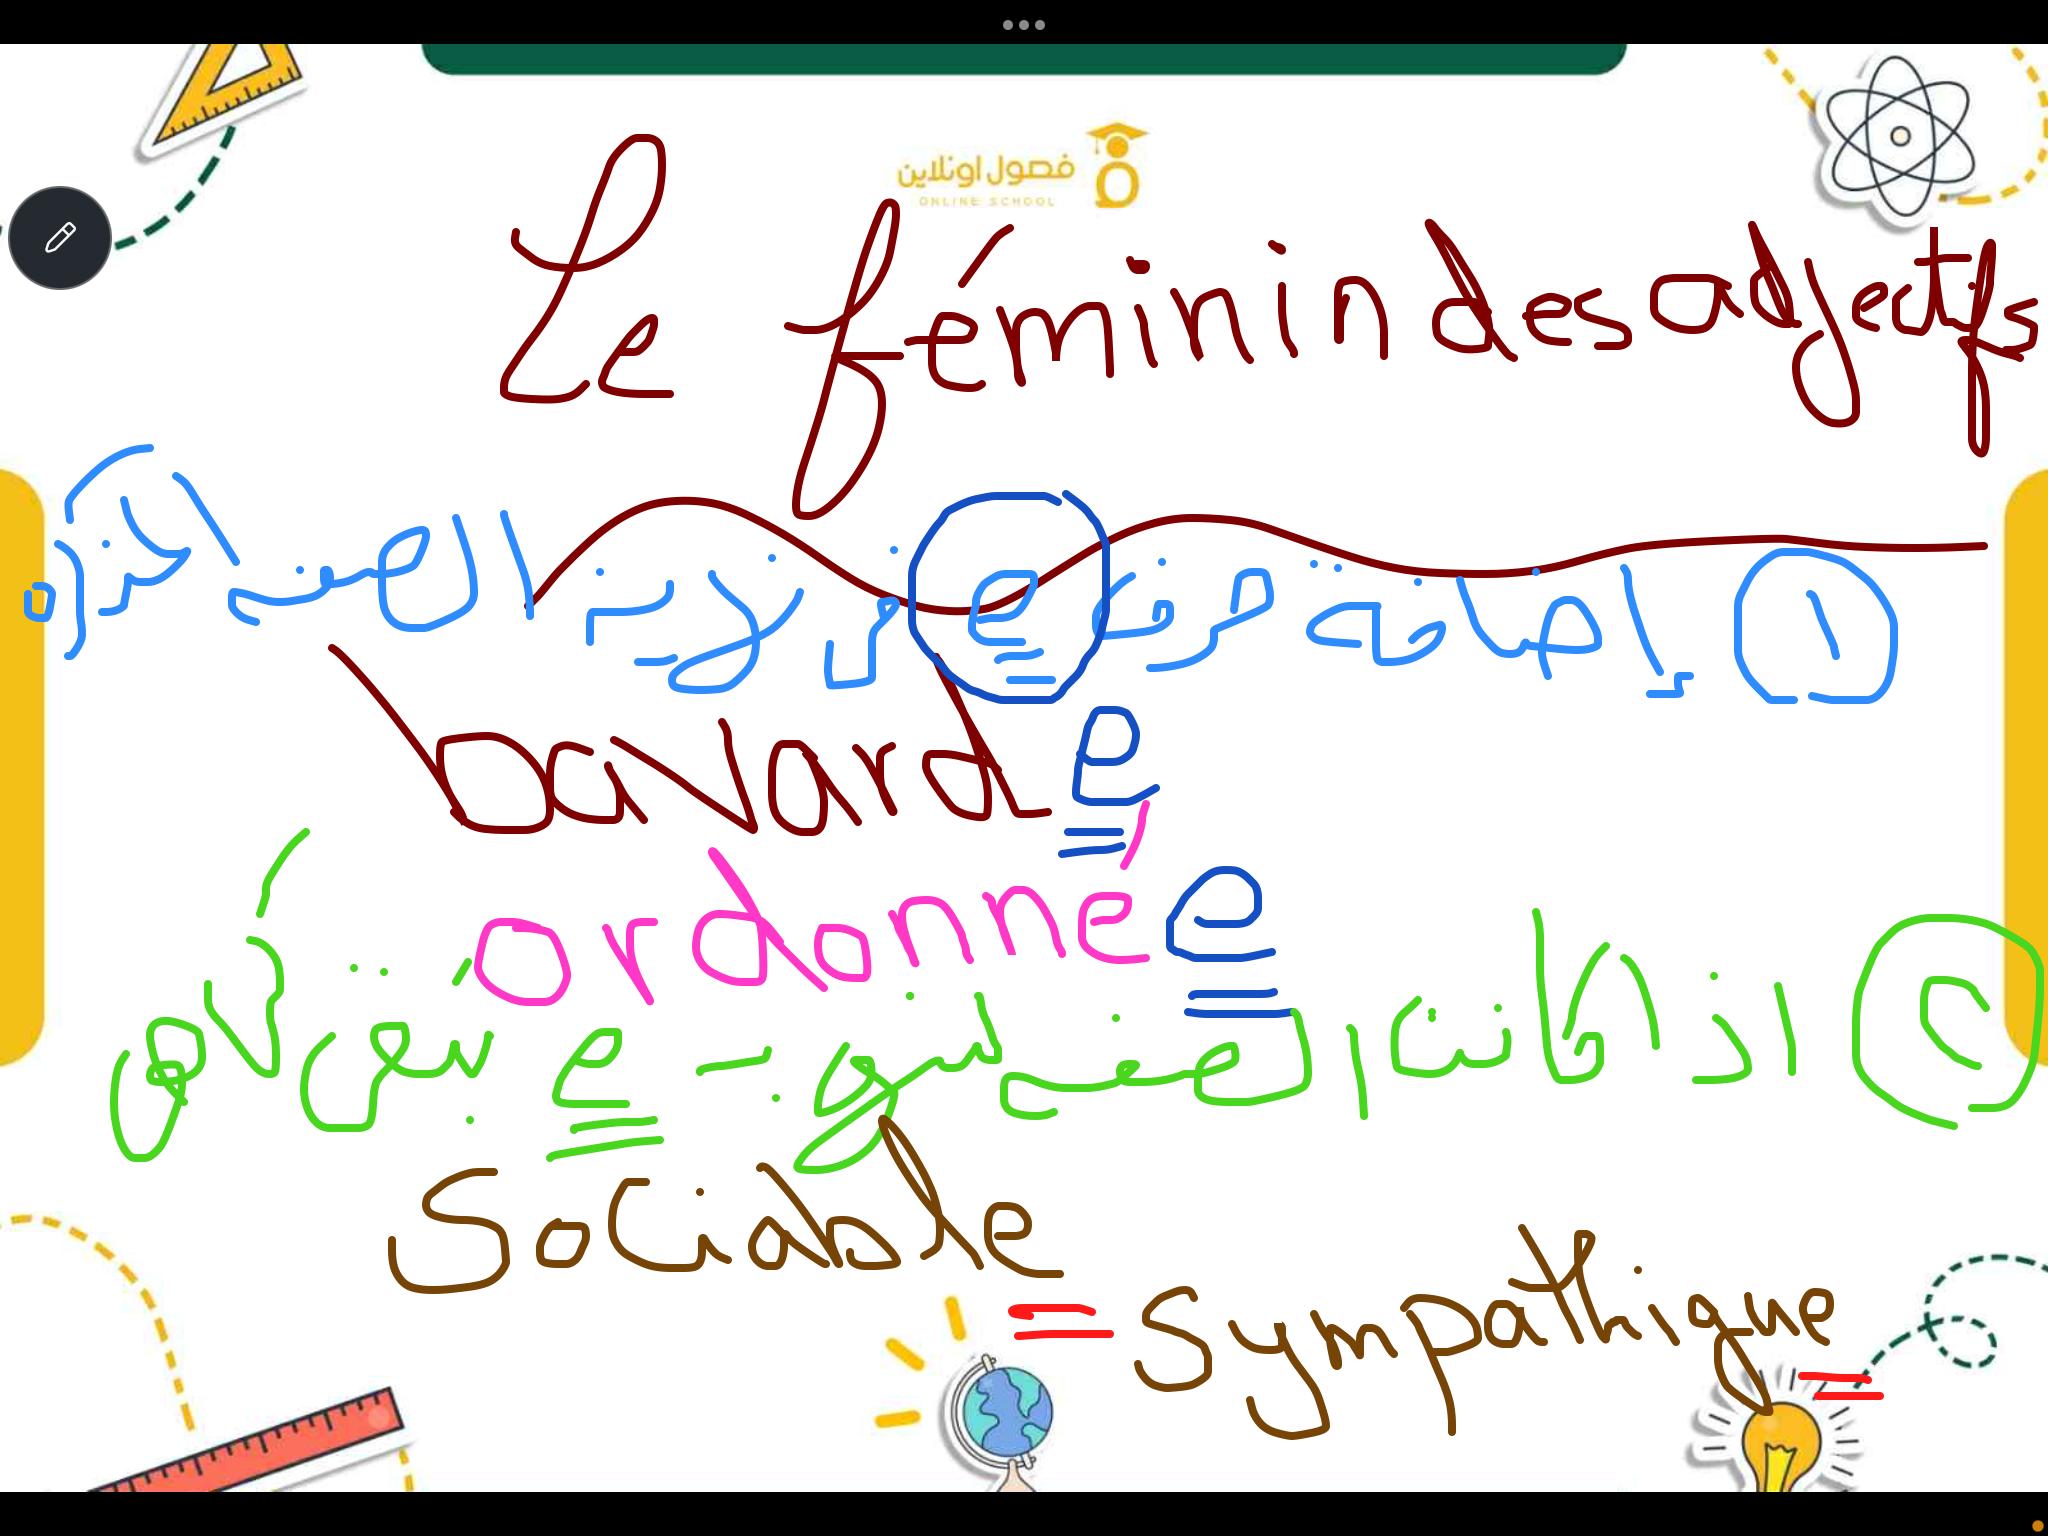 فصول اونلاين
ONLINE SCHOOL
Le féminin des adjectifs
١ إضافة حرف e في آخر الصفة المذكرة
bavard e
ordonné e
٢ إذا كانت الصفة تنتهي بـ e تبقى كما هي
Sociable
Sympathique